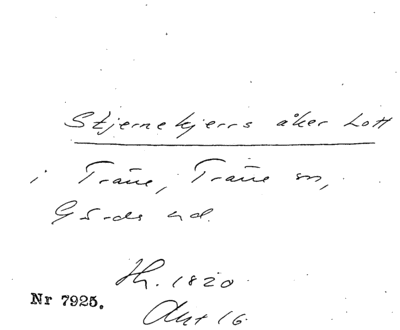 Stjernekjerrs åker Lott
i Träne, Träne sn,
Gärds hd.
Hh. 1820
Akt 16.
Nr 7925.